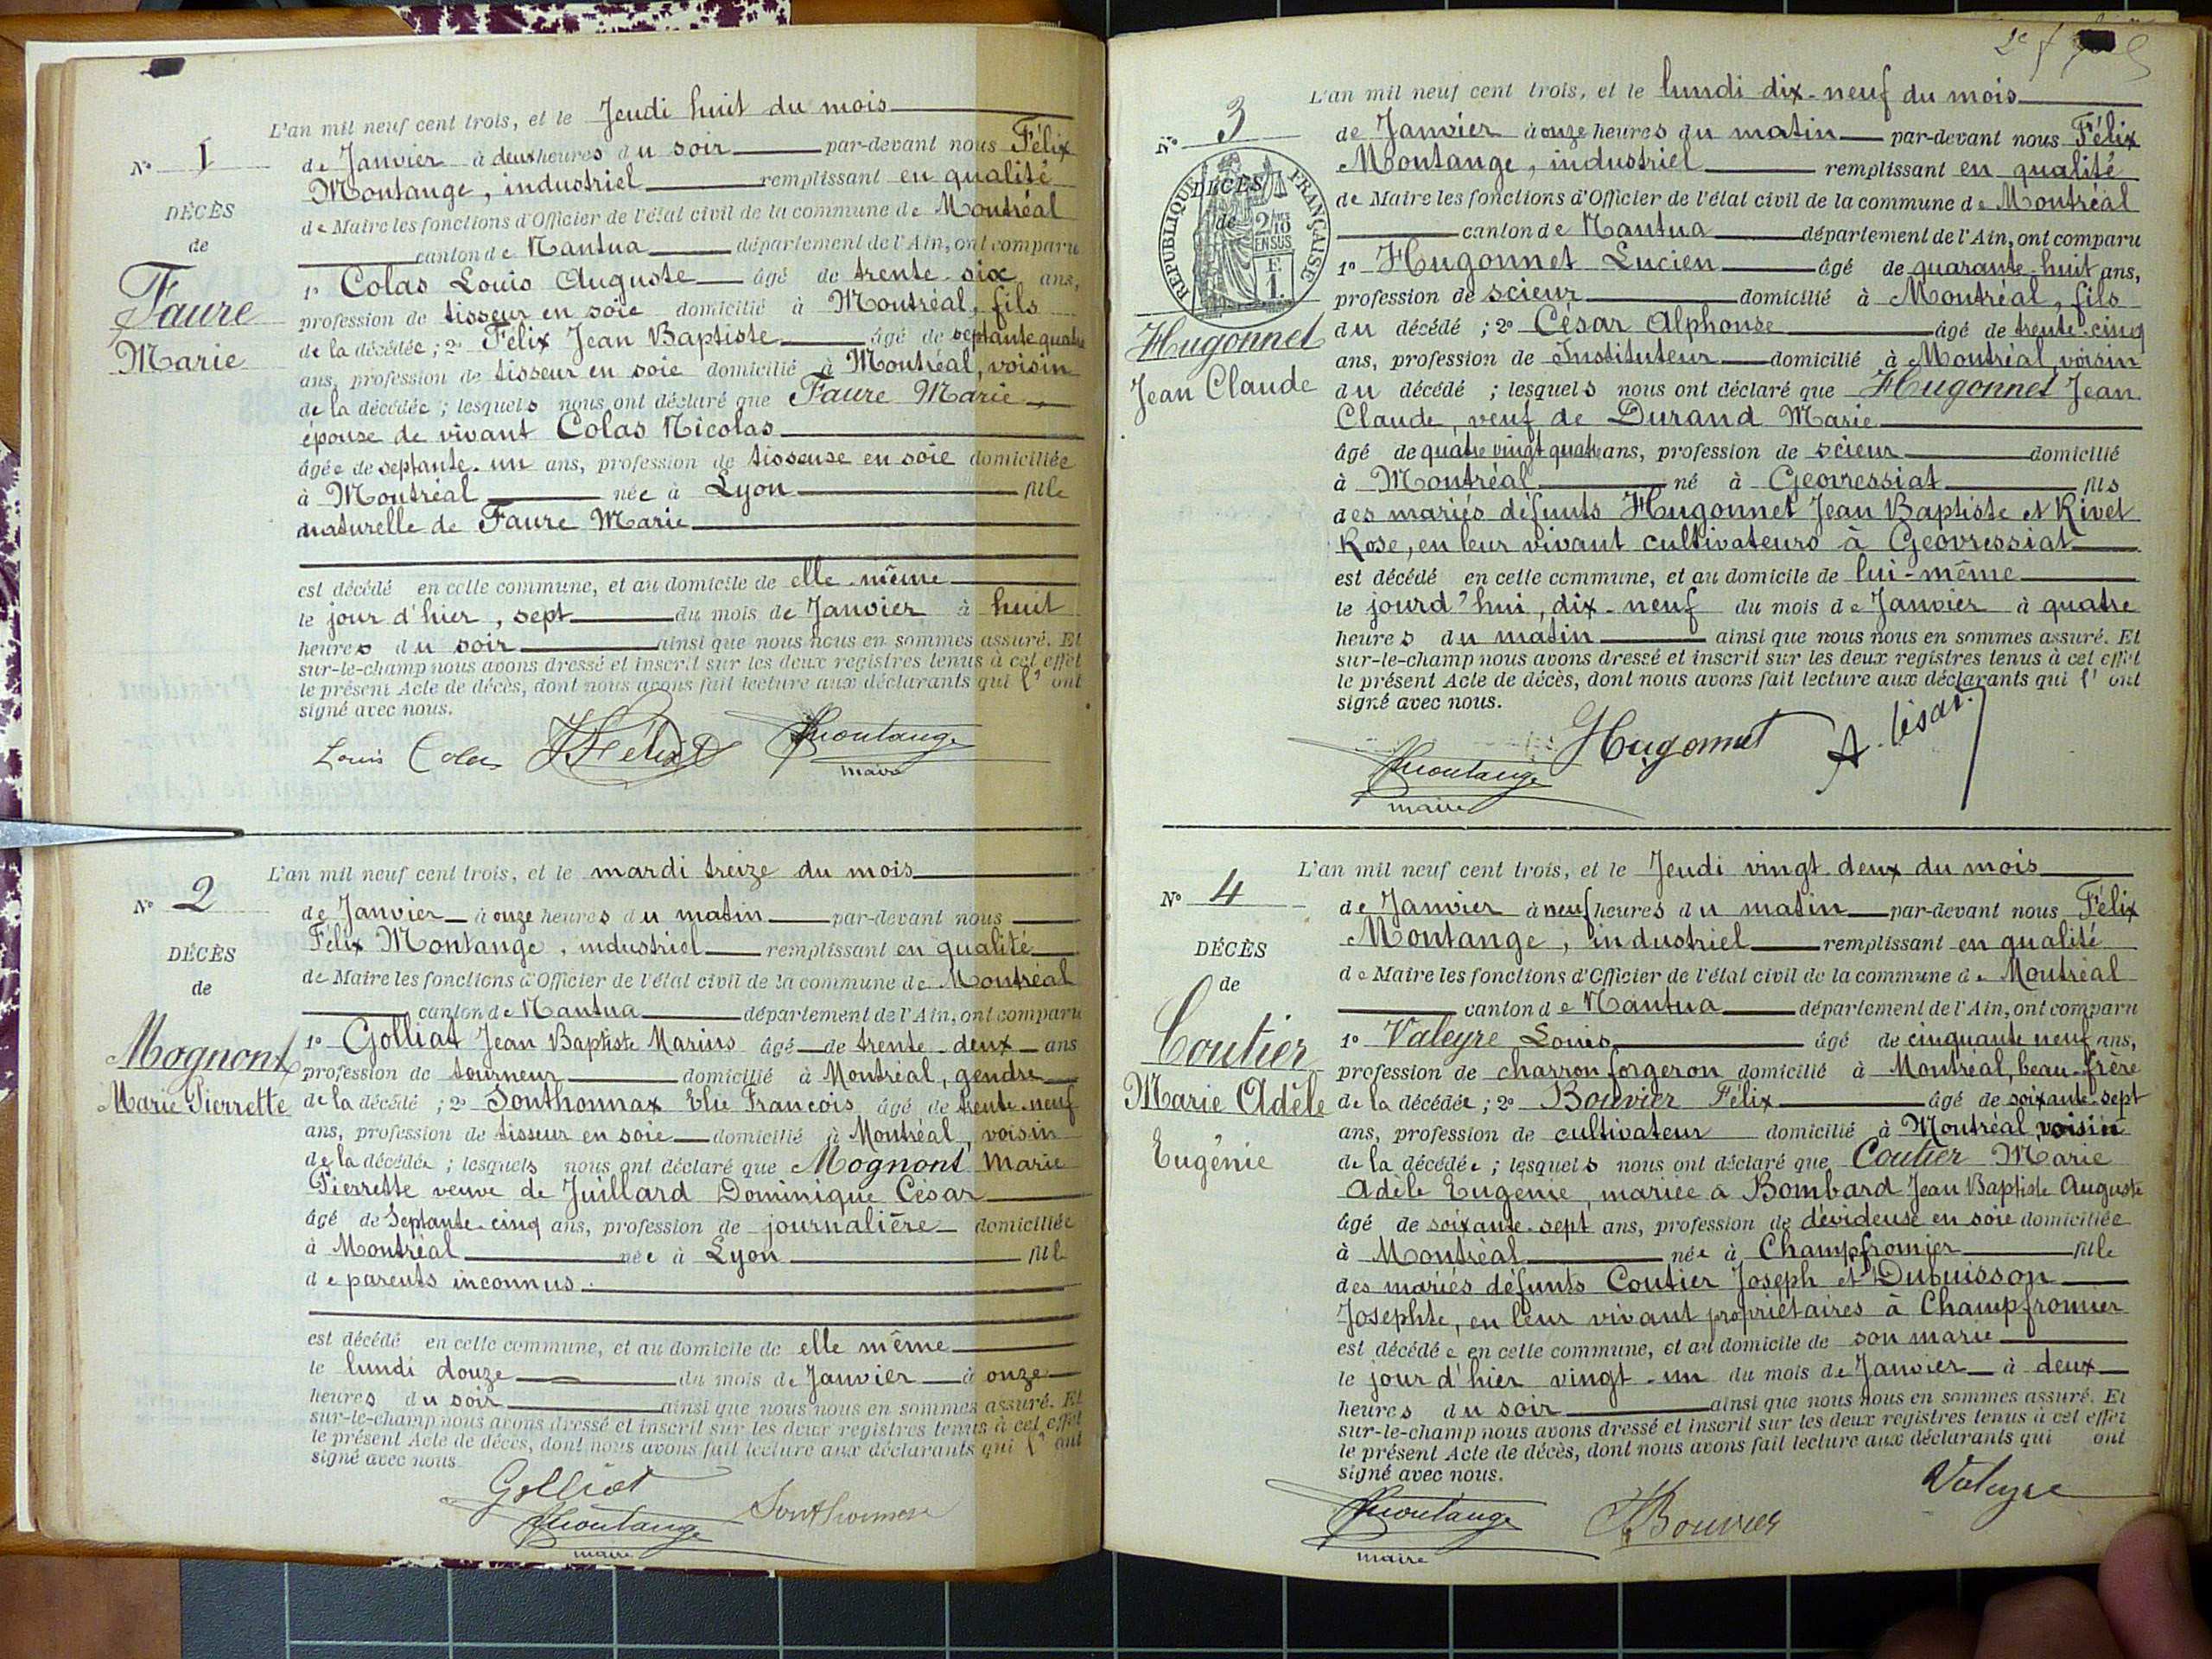 L'an mil neuf cent trois, et le Jeudi huit du mois
N° 1
de Janvier à deux heures du soir par-devant nous Félix
Montange, industriel remplissant en qualité
DÉCÈS
de Maire les fonctions d'Officier de l'état civil de la commune de Montréal
de
canton de Nantua département de l'Ain, ont comparu
Faure
1° Colas Louis Auguste âgé de trente-six ans,
profession de tisseur en soie domicilié à Montréal, fils
Marie
de la décédée ; 2° Félix Jean Baptiste âgé de septante quatre
ans, profession de tisseur en soie domicilié à Montréal, voisin
de la décédée ; lesquels nous ont déclaré que Faure Marie
épouse de vivant Colas Nicolas
âgée de septante-un ans, profession de tisseuse en soie domiciliée
à Montréal née à Lyon fille
naturelle de Faure Marie
est décédé en cette commune, et au domicile de elle-même
le jour d'hier, sept du mois de Janvier à huit
heures du soir ainsi que nous nous en sommes assuré. Et
sur-le-champ nous avons dressé et inscrit sur les deux registres tenus à cet effet
le présent Acte de décès, dont nous avons fait lecture aux déclarants qui l'ont
signé avec nous.
Louis Colas JFélix Montange
maire
L'an mil neuf cent trois, et le mardi treize du mois
N° 2
de Janvier à onze heures du matin par-devant nous
Félix Montange, industriel remplissant en qualité
DÉCÈS
de Maire les fonctions d'Officier de l'état civil de la commune de Montréal
de
canton de Nantua département de l'Ain, ont comparu
Mognont
1° Golliat Jean Baptiste Marius âgé de trente-deux ans
profession de tourneur domicilié à Montréal, gendre
Marie Pierrette
de la décédé ; 2° Sonthonnax Elie François âgé de trente-neuf
ans, profession de tisseur en soie domicilié à Montréal, voisin
de la décédée ; lesquels nous ont déclaré que Mognont Marie
Pierrette veuve de Juillard Dominique César
âgé de Septante-cinq ans, profession de journalière domiciliée
à Montréal née à Lyon fille
de parents inconnus.
est décédé en cette commune, et au domicile de elle même
le lundi douze du mois de Janvier à onze
heures du soir ainsi que nous nous en sommes assuré. Et
sur-le-champ nous avons dressé et inscrit sur les deux registres tenus à cet effet
le présent Acte de décès, dont nous avons fait lecture aux déclarants qui l'ont
signé avec nous
Golliat
Montange Sonthonnax
maire
L'an mil neuf cent trois, et le lundi dix-neuf du mois
N° 3
de Janvier à onze heures du matin par-devant nous Félix
Montange, industriel remplissant en qualité
RÉPUBLIQUE FRANÇAISE
DÉCÈS
de Maire les fonctions d'Officier de l'état civil de la commune de Montréal
de
2/10 EN SUS
canton de Nantua département de l'Ain, ont comparu
1° Hugonnet Lucien âgé de quarante-huit ans,
profession de scieur domicilié à Montréal, fils
Hugonnet
du décédé ; 2° César Alphonse âgé de trente-cinq
ans, profession de Instituteur domicilié à Montréal, voisin
Jean Claude
du décédé ; lesquels nous ont déclaré que Hugonnet Jean
Claude, veuf de Durand Marie
âgé de quatre vingt quatre ans, profession de scieur domicilié
à Montréal né à Geovressiat fils
des mariés défunts Hugonnet Jean Baptiste et Rivet
Rose, en leur vivant cultivateurs à Geovressiat
est décédé en cette commune, et au domicile de lui-même
le jourd'hui, dix-neuf du mois de Janvier à quatre
heures du matin ainsi que nous nous en sommes assuré. Et
sur-le-champ nous avons dressé et inscrit sur les deux registres tenus à cet effet
le présent Acte de décès, dont nous avons fait lecture aux déclarants qui l'ont
signé avec nous.
Montange Hugonnet A. César
maire
L'an mil neuf cent trois, et le Jeudi vingt-deux du mois
N° 4
de Janvier à neuf heures du matin par-devant nous Félix
Montange, industriel remplissant en qualité
DÉCÈS
de Maire les fonctions d'Officier de l'état civil de la commune de Montréal
de
canton de Nantua département de l'Ain, ont comparu
Coutier
1° Valeyre Louis âgé de cinquante neuf ans,
profession de charron forgeron domicilié à Montréal, beau-frère
Marie Adèle
de la décédée ; 2° Bouvier Félix âgé de soixante-sept
ans, profession de cultivateur domicilié à Montréal, voisin
Eugénie
de la décédée ; lesquels nous ont déclaré que Coutier Marie
Adèle Eugénie, mariée à Bombard Jean Baptiste Auguste
âgé de soixante-sept ans, profession de dévideuse en soie domiciliée
à Montréal née à Champfromier fille
des mariés défunts Coutier Joseph et Dubuisson
Josephte, en leur vivant propriétaires à Champfromier
est décédée en cette commune, et au domicile de son marie
le jour d'hier vingt-un du mois de Janvier à deux
heures du soir ainsi que nous nous en sommes assuré. Et
sur-le-champ nous avons dressé et inscrit sur les deux registres tenus à cet effet
le présent Acte de décès, dont nous avons fait lecture aux déclarants qui ont
signé avec nous.
Montange Bouvier Valeyre
maire